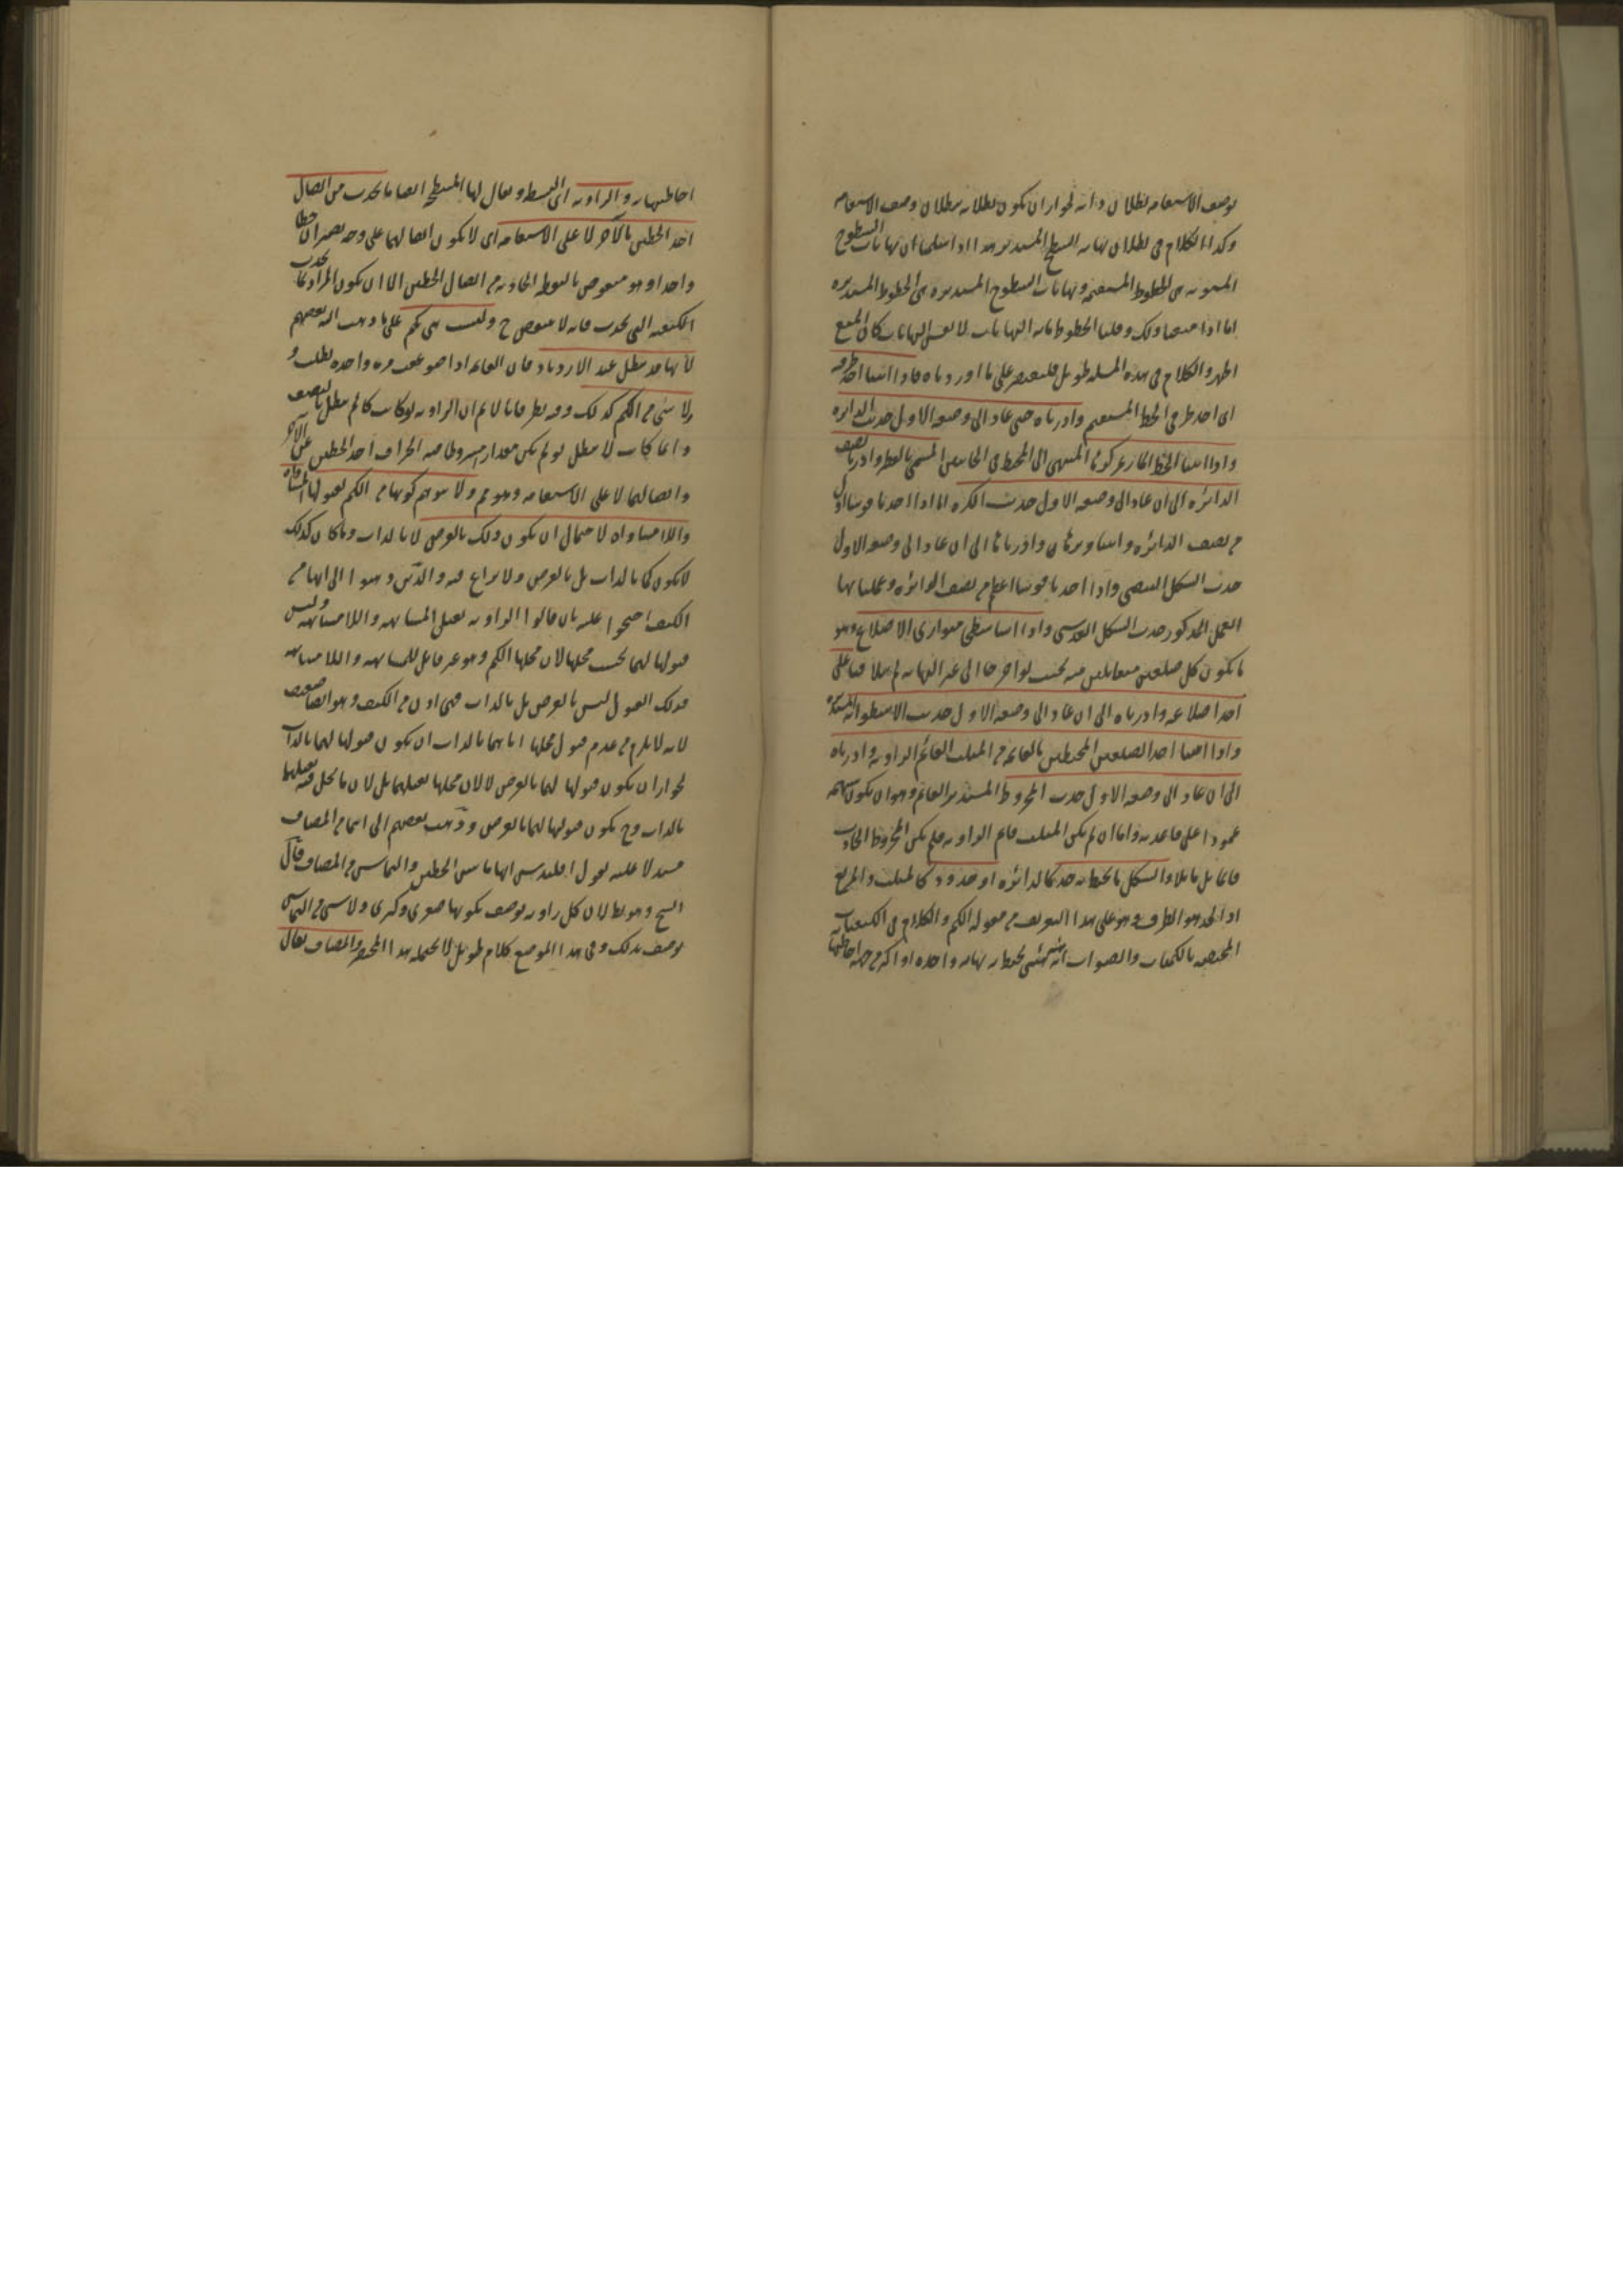 بوصف الاستقامه بطلان ذاته لجواز ان يكون بطلانه ببطلان وصف الاستقامه
وكذا الكلام فى بطلان نهايه السطح المستدير هذا اذا سلمنا ان نهايات السطوح
المستويه هى الخطوط المستقيمه ونهايات السطوح المستديره هى الخطوط المستديره
اما اذا منعنا ذلك وقلنا الخطوط هذه النهايات لا نفس النهايات كان المنع
اظهر والكلام فى هذه المسله طويل فلنقتصر على ما اوردناه فاذا اثبتنا احد طرفيه
اى احد طرفى الخط المستقيم وادرناه حتى عاد الى وضعه الاول حدث الدائره
واذا اثبتنا الخط المار بمركزها المنتهى الى المحيط فى الجانبين المسمى بالقطر وادرنا نصف
الدائره الى ان عاد الى وضعه الاول حدث الكره اما اذا اخذنا قوسا اقل
من نصف الدائره واثبتنا وترها وادرناها الى ان عاد الى وضعه الاول
حدث الشكل البيضى واذا اخذنا قوسا اعظم من نصف الدائره وعملنا بها
العمل المذكور حدث الشكل العدسى واذا اثبتنا سطحى متوازى الاضلاع وهو
ما يكون كل ضلعين متقابلين منه بحيث لو اخرجا الى غير النهايه لم يتلاقيا على
احد اضلاعه وادرناه الى ان عاد الى وضعه الاول حدث الاسطوانه المستديره
واذا اثبتنا احد الضلعين المحيطين بالقائمه من المثلث القائم الزاويه وادرناه
الى ان عاد الى وضعه الاول حدث المخروط المستدير القائم وهو ان يكون سهمه
عمودا على قاعدته واما ان لم يكن المثلث قائم الزاويه فلم يكن المخروط الحادث
قائما بل مائلا والشكل ما يحيط به حد كالدائره او حدود كالمثلث والمربع
اذ الحد هو الطرف وهو على هذا التعريف من مقوله الكم والكلام فى الكيفيات
المختصه بالكميات والصواب انه هيئه شئ يحيط به نهايه واحده او اكثر من جهه احاطتها
احاطتها به والزاويه اى البسيط ويقال لها المسطحه ايضا ما يحدث من اتصال
احد الخطين بالآخر لا على الاستقامه اى لا يكون اتصالهما على وجه يصيران خطا
واحدا وهو منقوض بالنقطه الحادثه من اتصال الخطين الا ان يكون المراد بما يحدث
الكيفيه التى يحدث فانه لا ينتقض ح وليست هى بكم على ما ذهب اليه بعضهم
لانها قد تبطل عند الازدياد فان القائمه اذا ضوعفت مره واحده بطلت و
ولا شئ من الكم كذلك وفيه نظر فانا لا نم ان الزاويه لو كانت كما لم تبطل بالتضعيف
وانما كانت لا تبطل لو لم يكن مقدار مشروطا فيه انحراف احد الخطين عن الآخر
واتصالهما لا على الاستقامه وهو مم ولا يتوهم كونها من الكم لقبولها المساواه
واللامساواه لاحتمال ان يكون ذلك بالعرض لا بالذات وما كان كذلك
لا يكون كما بالذات بل بالعرض ولا نزاع فيه والذين ذهبوا الى انها من
الكيف احتجوا عليه بان قالوا الزاويه تقبل المشابهه واللامشابهه وليس
قبولها لهما بحسب محلها لان محلها الكم وهو غير قابل للمشابهه واللامشابهه
فذلك القبول ليس بالعرض بل بالذات فهى اذن من الكيف وهو ايضا ضعيف
لانه لا يلزم من عدم قبول محلها اياهما بالذات ان يكون قبولها لهما بالذات
لجواز ان يكون قبولها لهما بالعرض لا لان محلها يقبلهما بل لان ما تحل فيه يقبلهما
بالذات وح يكون قبولها لهما بالعرض وذهب بعضهم الى انها من المضاف
مستدلا عليه بقول اقليدس انها تماس الخطين والتماس من المضاف قال
الشيخ وهو بط لان كل زاويه توصف بكونها صغرى وكبرى ولا شئ من التماس
يوصف بذلك وفى هذا الموضع كلام طويل لا يحتمله هذا المختصر والمضاف يقال